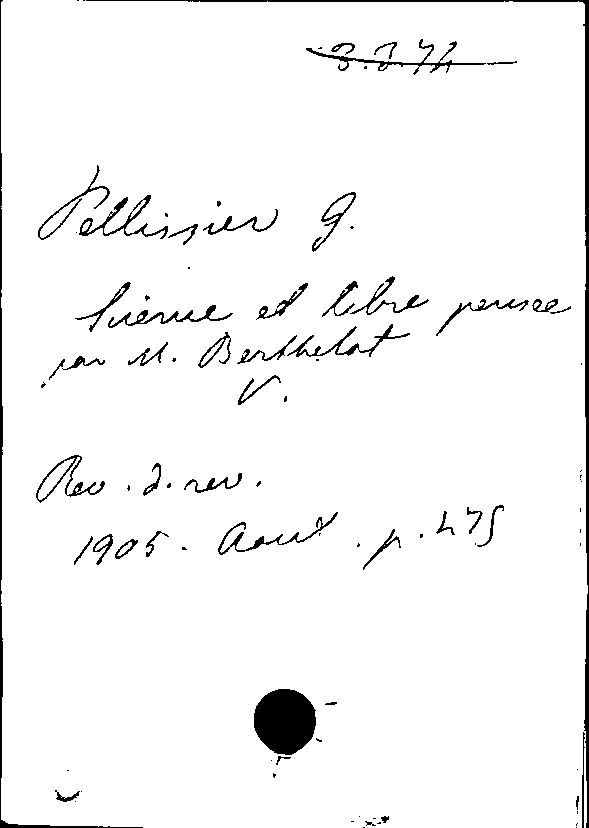 3.3.74
Pellissier G.
Science et libre pensée
par M. Berthelot
V.
Rev. d. rev.
1905. Aout. p. 475